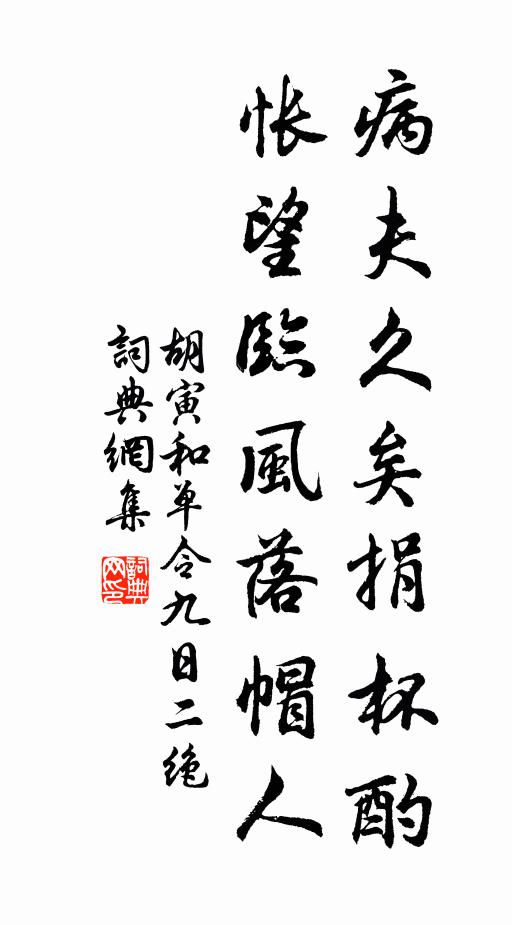 病夫久矣捐杯酌
悵望臨風落帽人
胡寅和单令九日二绝
詞典網集
詞典
网印